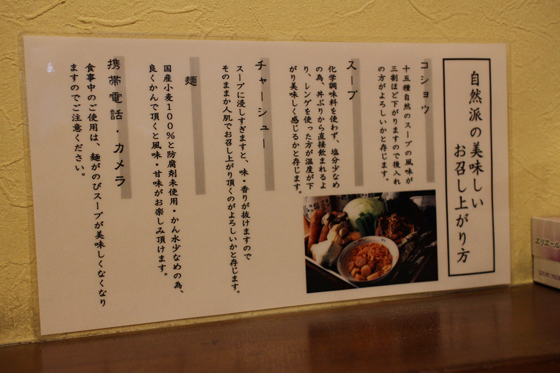 自然派の美味しい
お召し上がり方
コショウ
十五種自然のスープの風味が
三割ほど下がりますので後入れ
の方がよろしいかと存じます。
スープ
化学調味料を使わず、塩分少なめ
の為、丼ぶりから直接飲まれるよ
り、レンゲを使った方が温度が下
がり美味しく感じるかと存じます。
チャーシュー
スープに浸しすぎますと、味・香りが抜けますので
そのままか人肌でお召し上がり頂くのがよろしいかと存じます。
麺
国産小麦100%と防腐剤未使用・かん水少なめの為、
良くかんで頂くと風味・甘味がお楽しみ頂けます。
携帯電話・カメラ
食事中のご使用は、麺がのびスープが美味しくなくなり
ますのでご注意ください。
エリエール